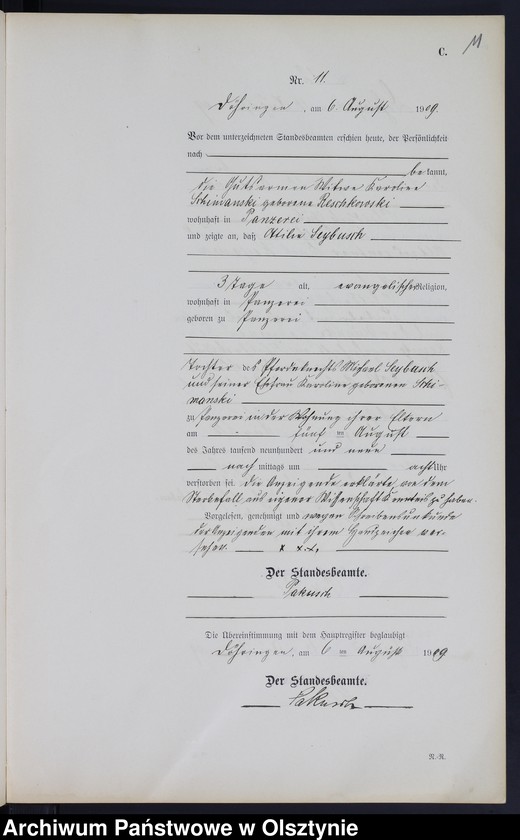 C.
11
Nr. 11.
Döhringen, am 6. August 1909.
Vor dem unterzeichneten Standesbeamten erschien heute, der Persönlichkeit
nach
bekannt,
die Gutsarmen Witwe Karoline
Schimanski geborene Reschkowski
wohnhaft in Panzerei
und zeigte an, daß Otilie Seybusch
3 Tage alt, evangelischer Religion,
wohnhaft in Panzerei
geboren zu Panzerei
Tochter des Pferdeknechts Michael Seybusch
und seiner Ehefrau Karoline geborenen Schi-
manski
zu Panzerei in der Wohnung ihrer Eltern
am fünf ten August
des Jahres tausend neunhundert und neun
nach mittags um acht Uhr
verstorben sei. die Anzeigende erklärte, von dem
Sterbefall aus eigener Wissenschaft Kenntnis zu haben.
Vorgelesen, genehmigt und wegen Schreibensunkunde
der Anzeigenden mit ihrem Handzeichen ver-
sehen. x x x,
Der Standesbeamte.
Pakusch
Die Übereinstimmung mit dem Hauptregister beglaubigt
Döhringen, am 6 ten August 1909
Der Standesbeamte.
Pakusch
N.-R.
Archiwum Państwowe w Olsztynie